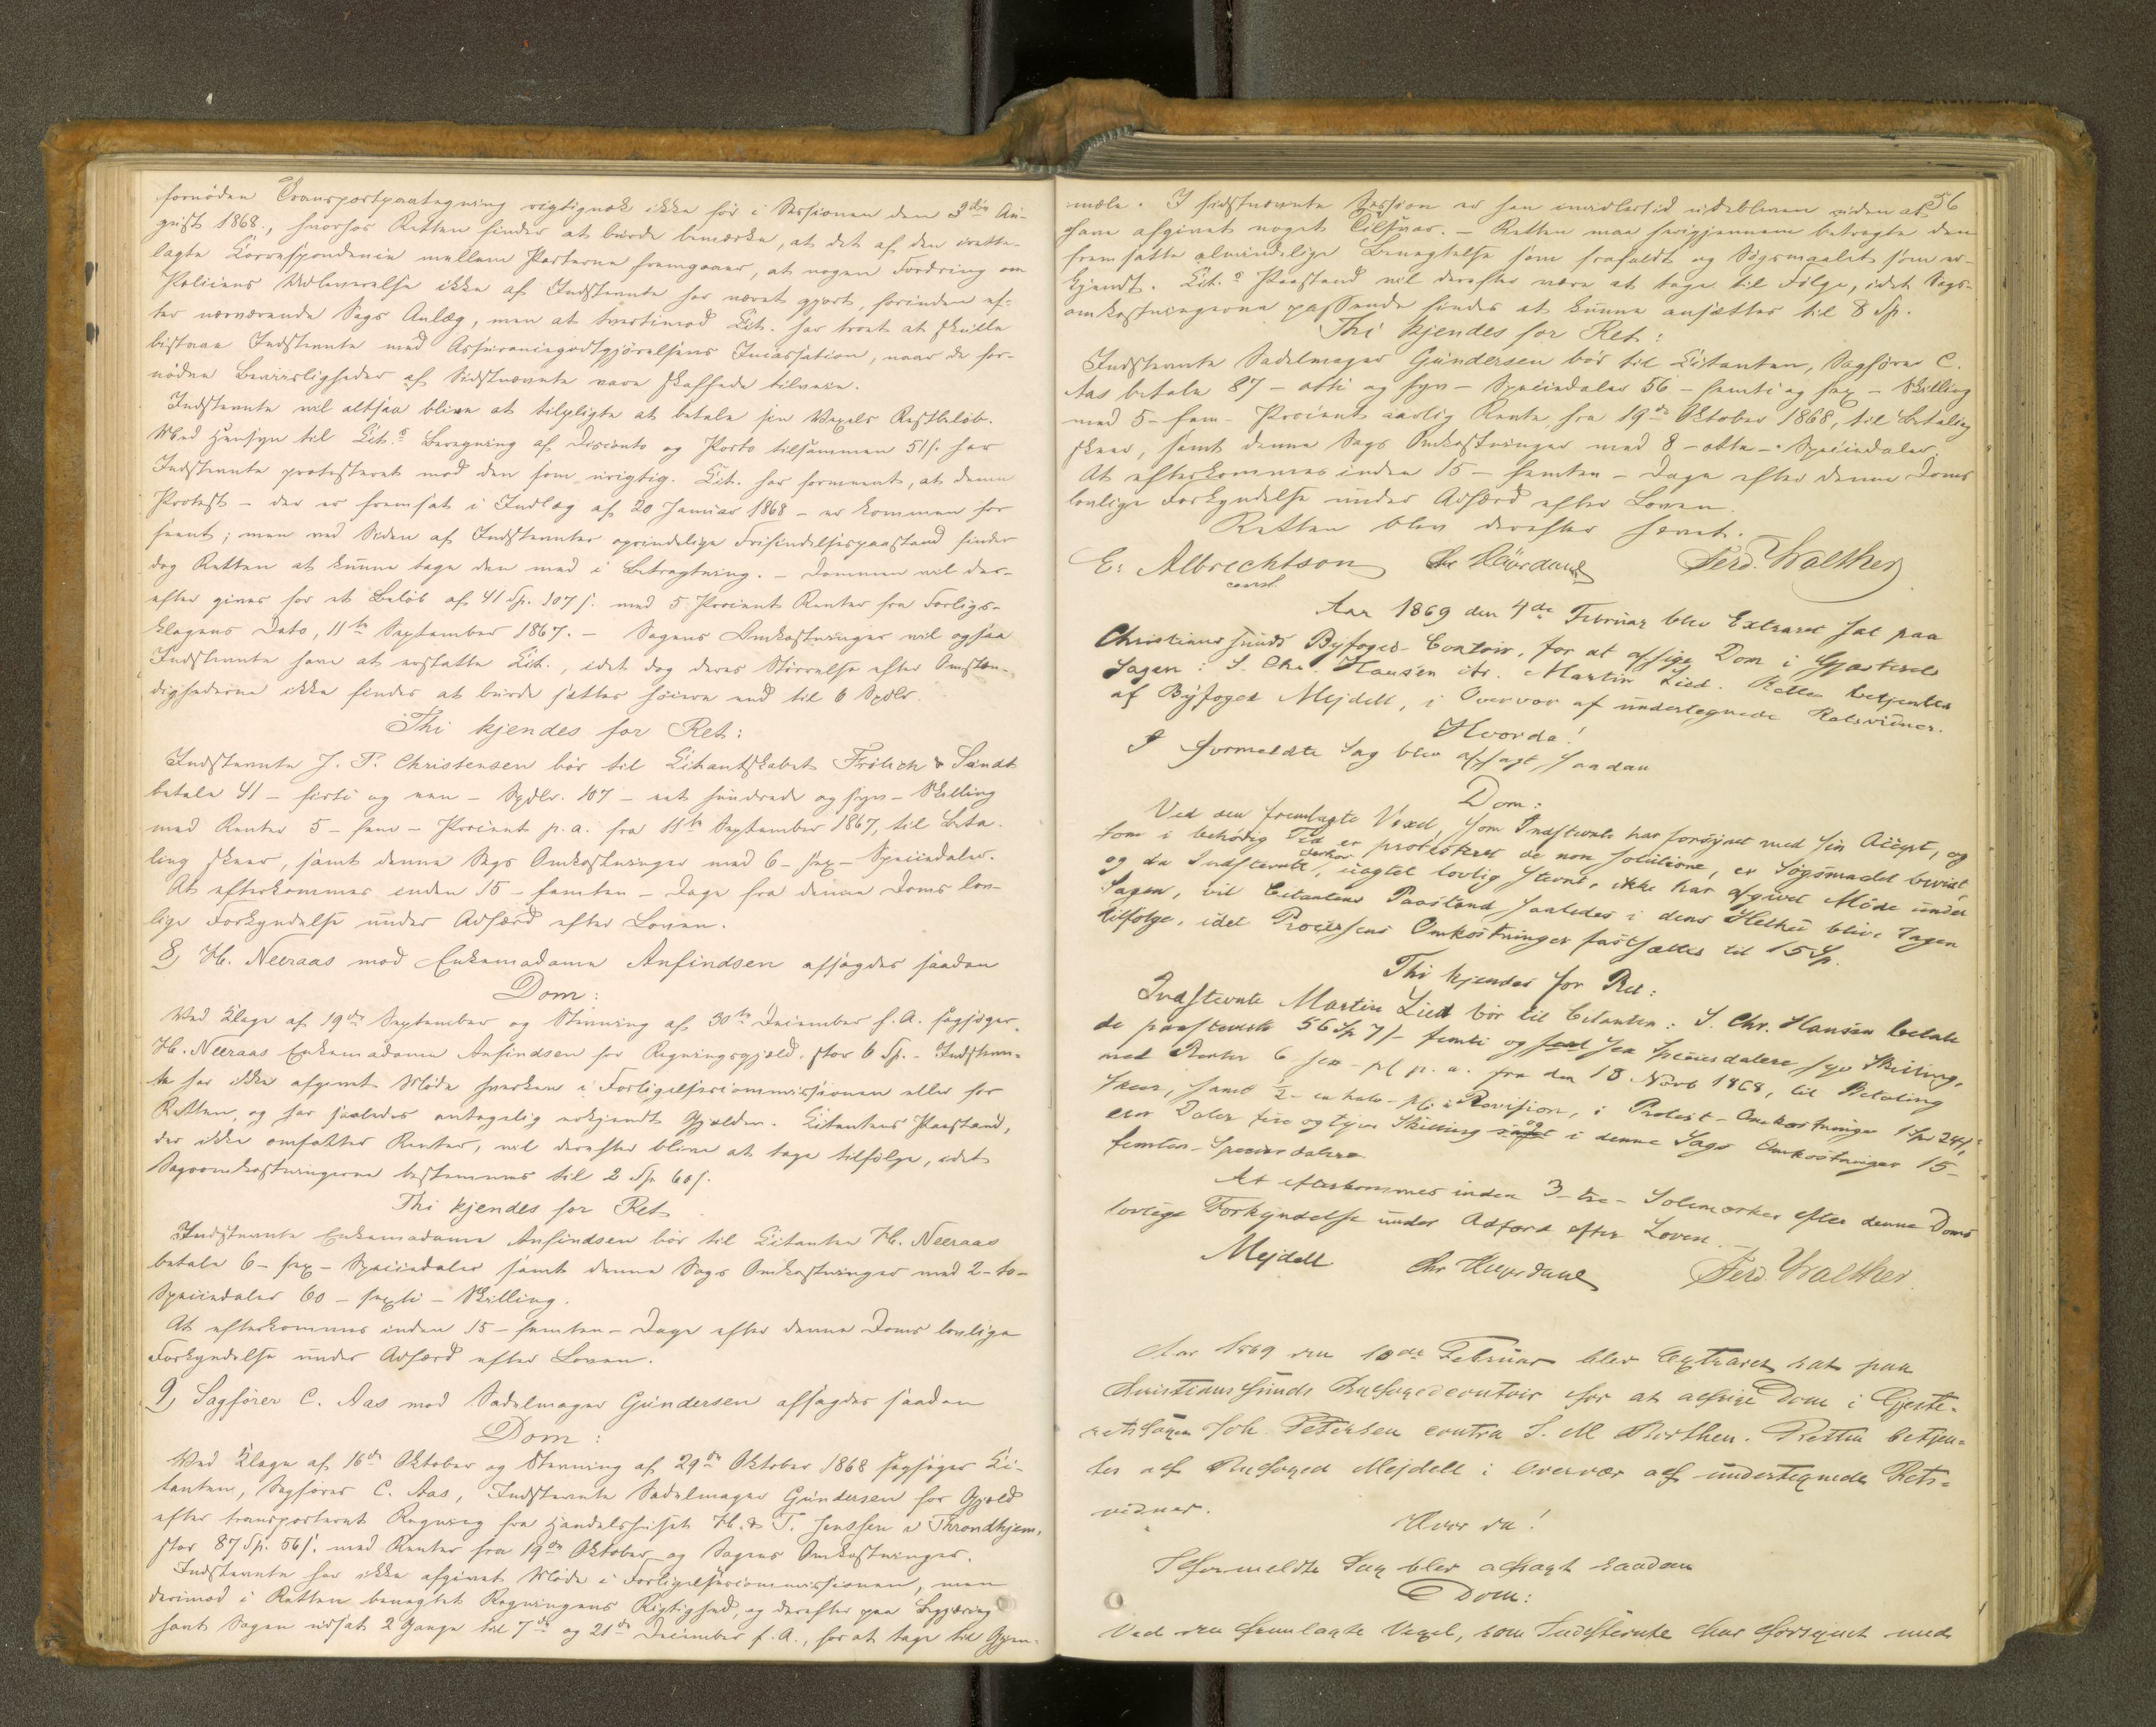 fornöden Transportpaategning rigtignok ikke før i Sessionen den 3die Au-
gust 1868., hvorhos Retten finder at burde bemærke, at det af den irette-
lagte Correspondence mellem Parterne fremgaaer, at nogen Fordring om
Policens Udleverelse ikke af Indstevnte har været gjort, forinden ef-
ter nærværende Sags Anlæg, men at tvertimod Cit. har troet at skulle
bistaae Indstevnte med Assurancegodtgjørelsens Incassation, naar de for-
nödne Beviisligheder af Sidstnævnte vare skaffede tilveie.
Indstevnte vil altsaa blive at tilpligte at betale sin Vexels Restbeløb.
Med Hensyn til Cit.s Beregning af Disconto og Porto tilsammen 51 s. har
Indstevnte protesteret mod den som urigtig. Cit. har formeent, at denne
Protest – der er fremsat i Indlæg af 20 Januar 1868 – er kommen for
seent; men ved Siden af Indstevntes oprindelige Frifindelsespaastand finder
dog Retten at kunne tage den med i Betragtning. – Dommen vil der-
efter gives for et Beløb af 41 Sp. 107 s. med 5 Procent Renter fra Forligs-
klagens Dato, 11te September 1867. – Sagens Omkostninger vil ogsaa
Indstevnte have at erstatte Cit., idet dog deres Størrelse efter Omstæn-
dighederne ikke findes at burde sættes høiere end til 6 Spdlr.
Thi kjendes for Ret:
Indstevnte J. P. Christensen bør til Citantskabet Frölich & Sundt
betale 41 – firti og een – Spdlr. 107 – eet hundrede og syv – Skilling
med Renter 5 – fem – Procent p. a. fra 11te September 1867, til Beta-
ling skeer, samt denne Sags Omkostninger med 6 – sex – Speciedaler.
At efterkommes inden 15 – femten – Dage fra denne Doms lov-
lige Forkyndelse under Adfærd efter Loven.
8, H. Neeraas mod Enkemadame Anfindsen afsagdes saadan
Dom:
Ved Klage af 19de September og Stevning af 30te December f. A. sagsøger
H. Neeraas Enkemadame Anfindsen for Regningsgjæld, stor 6 Sp. – Indstevn-
te har ikke afgivet Møde hverken i Forligelsescommissionen eller for
Retten, og har saaledes antagelig erkjendt Gjælden. Citantens Paastand,
der ikke omfatter Renter, vil derefter blive at tage tilfølge, idet
Sagsomkostningerne bestemmes til 2 Sp. 60 s.
Thi kjendes for Ret
Indstevnte Enkemadame Anfindsen bør til Citanten H. Neeraas
betale 6 – sex – Speciedaler samt denne Sags Omkostninger med 2 – to –
Speciedaler 60 – sexti – Skilling.
At efterkommes inden 15 – femten – Dage efter denne Doms lovlige
Forkyndelse under Adfærd efter Loven.
9, Sagfører C. Aas mod Sadelmager Gundersen afsagdes saadan
Dom:
Ved Klage af 16de Oktober og Stevning af 29de Oktober 1868 sagsøger Ci-
tanten, Sagfører C. Aas, Indstevnte Sadelmager Gundersen for Gjæld
efter transporteret Regning fra Handelshuset H. & T. Jenssen i Throndhjem,
stor 87 Sp. 56 s. med Renter fra 19de Oktober og Sagens Omkostninger.
Indstevnte har ikke afgivet Møde i Forligelsescommissionen, men
derimod i Retten benegtet Regningens Rigtighed, og derefter paa Begjæring
havt Sagen udsat 2 Gange til 7de og 21de December f. A., for at tage til Gjen-
56
mæle. I sidstnævnte Session er han imidlertid udebleven uden at
have afgivet noget Tilsvar. – Retten maa herigjennem betragte den
fremsatte almindelige Benegtelse som frafaldt og Søgsmaalet som er-
kjendt. Cit.s Paastand vil derefter være at tage til Følge, idet Sags-
omkostningerne passende findes at kunne ansættes til 8 Sp.
Thi kjendes for Ret:
Indstevnte Sadelmager Gundersen bør til Citanten, Sagfører C.
Aas betale 87 – otti og syv – Speciedaler 56 – femti og sex – Skilling
med 5 – fem – Procent aarlig Rente fra 19de Oktober 1868, til Betaling
skeer, samt denne Sags Omkostninger med 8 – otte – Speciedaler.
At efterkommes inden 15 – femten – Dage efter denne Doms
lovlige Forkyndelse under Adfærd efter Loven.
Retten blev derefter hævet.
E. Albrechtson Chr Ferd. Walther
const.
Aar 1869 den 4de Februar blev Extraret sat paa
Christianssunds Byfoged-Contoir, for at afsige Dom i Gjæsterets
Sagen: S. Chr. Hansen ctr. Martin Lied. Retten betjentes
af Byfoged Mejdell, i Overvær af undertegnede Retsvidner.
Hvorda!
I formeldte Sag blev afsagt saadan
Dom:
Ved den fremlagte Vexel, som Indstevnte har forsynet med sin Accept, og
som i behørig Tid er protesteret de non solutione, er Søgsmaalet beviist,
og da Indstevnte derhos, uagtet lovlig stevnt, ikke har afgivet Møde under
Sagen, vil Citantens Paastand saaledes i dens Helhed blive tagen
tilfølge, idet Processens Omkostninger fastsættes til 15 Sp.
Thi kjendes for Ret:
Indstevnte Martin Lied bør til Citanten: S. Chr. Hansen betale
de paastevnte 56 Sp 7 s – femti og sex Speciesdalere syv Skilling,
med Renter 6 – sex – pCt p. a. fra den 18 Novb 1868, til Betaling
skeer, samt ½ – en halv – pCt i Provision, i Protest-Omkostninger 1 Spd 24 s,
een Daler fire og tyve Skilling og i denne Sags Omkostninger 15 –
femten – Speciesdalere.
At efterkommes inden 3 – tre – Solemærker efter denne Doms
lovlige Forkyndelse under Adfærd efter Loven.
Mejdell Chr Ferd. Walther
Aar 1869 den 10de Februar blev Extraret sat paa
Christianssunds Byfogedcontoir for at afsige Dom i Gjeste-
retssagen Joh. Petersen contra S. M. Retten betjen-
tes af Byfoged Mejdell i Overvær af undertegnede Rets-
vidner.
Hvor da!
I formeldte Sag blev afsagt saadan
Dom:
Ved den fremlagte Vexel, som Indstevnte har forsynet med